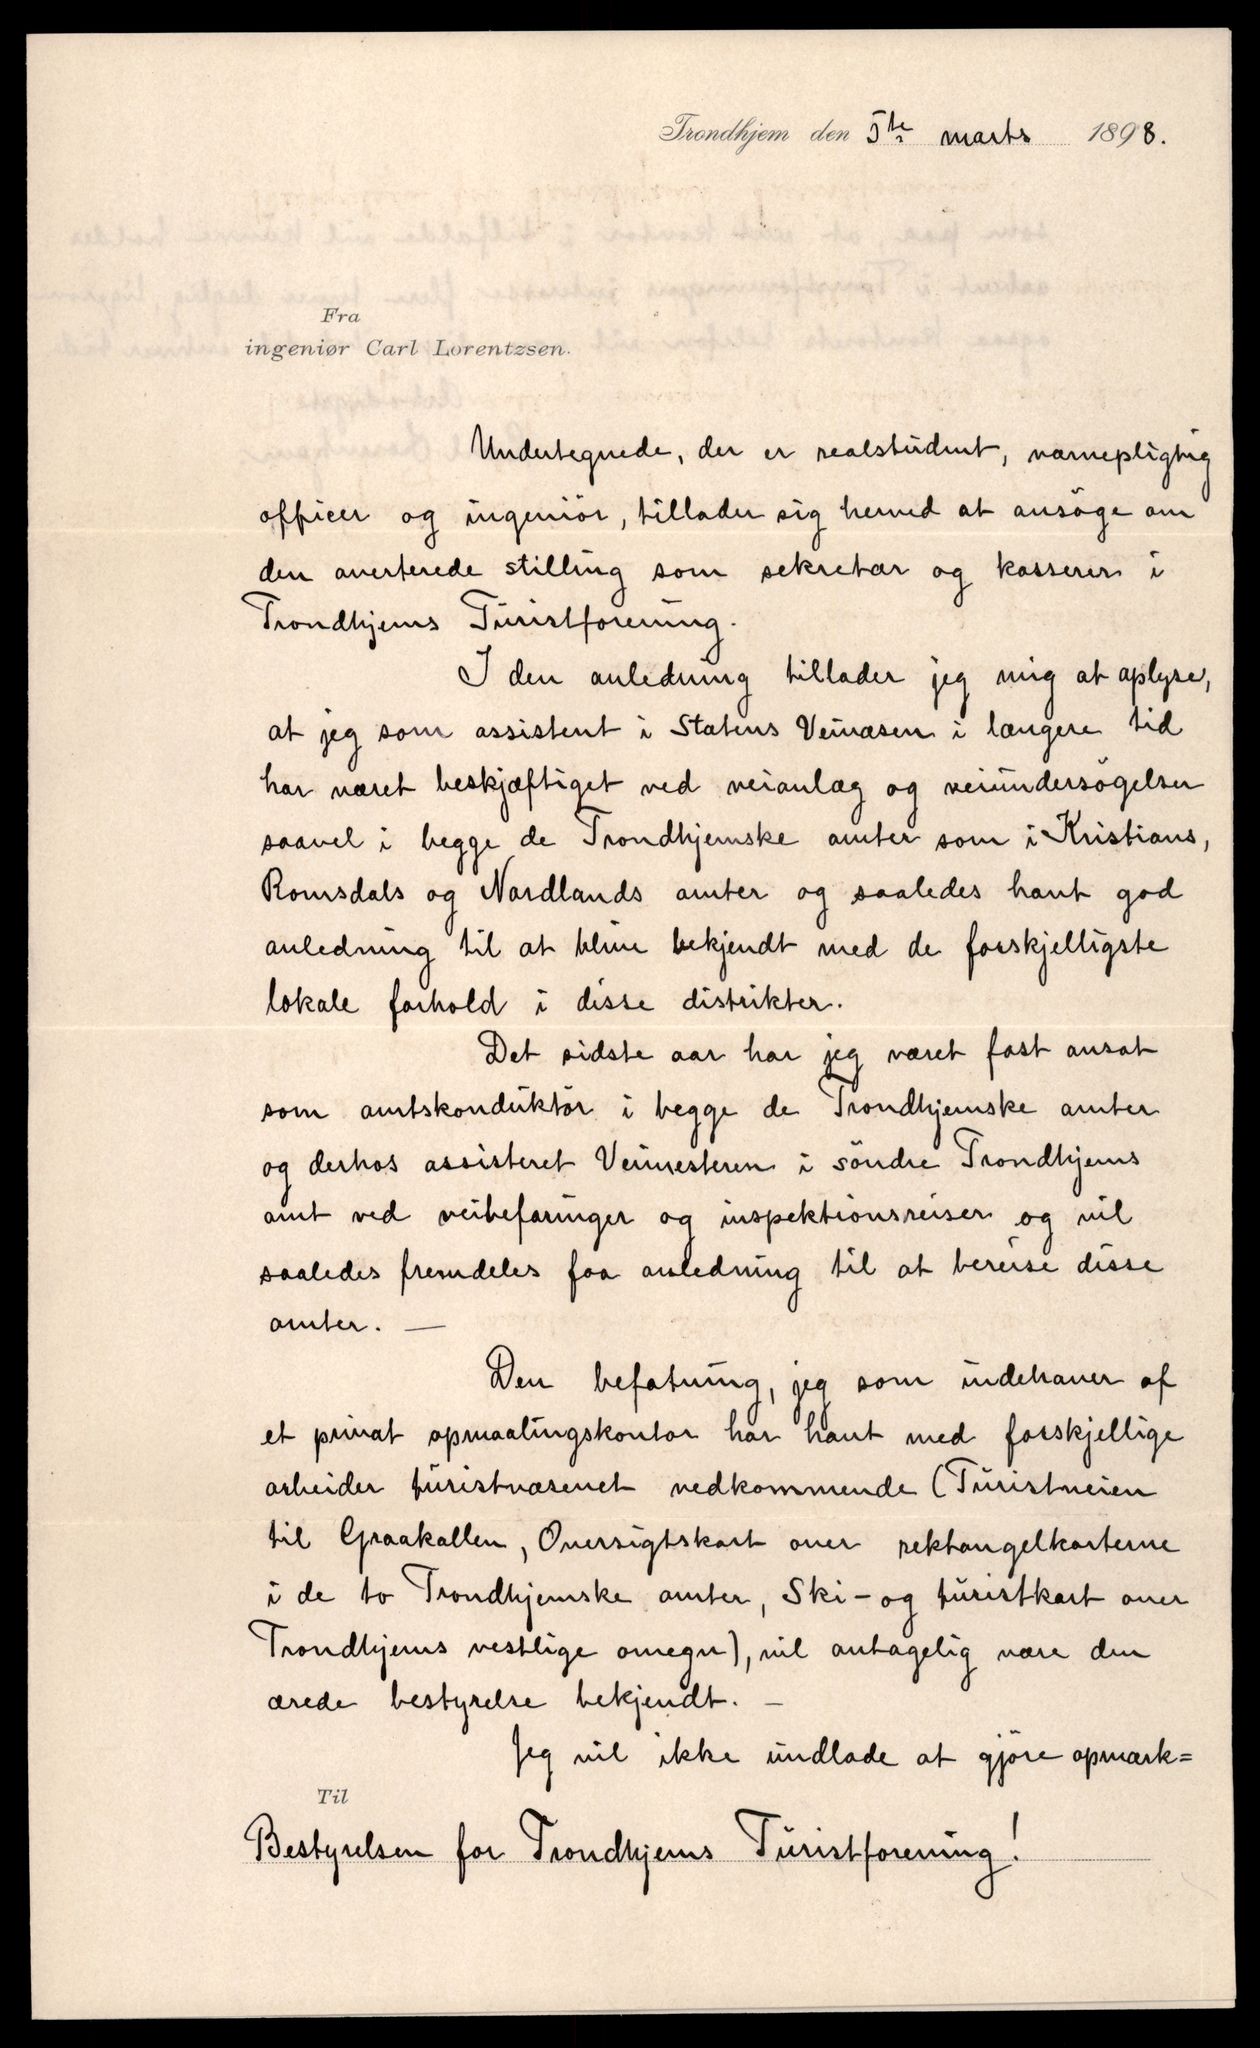 Trondhjem den 5te marts 1898.
Fra
ingeniør Carl Lorentzsen.
Undertegnede, der er realstudent, værnepligtig
officer og ingeniör, tillader sig herved at ansöge om
den averterede stilling som sekretær og kasserer i
Trondhjems Turistforening.
I den anledning tillader jeg mig at oplyse,
at jeg som assistent i Statens Veivæsen i længere tid
har været beskjæftiget ved veianlæg og veiundersögelser
saavel i begge de Trondhjemske amter som i Kristians,
Romsdals og Nordlands amter og saaledes havt god
anledning til at blive bekjendt med de forskjelligste
lokale forhold i disse distrikter.
Det sidste aar har jeg været fast ansat
som amtskonduktör i begge de Trondhjemske amter
og derhos assisteret Veimesteren i söndre Trondhjems
amt ved veibefaringer og inspektionsreiser og vil
saaledes fremdeles faa anledning til at bereise disse
amter. —
Den befatning, jeg som indehaver af
et privat opmaalingskontor har havt med forskjellige
arbeider turistvæsenet vedkommende (Turistveien
til Graakallen, Oversigtskart over rektangelkarterne
i de to Trondhjemske amter, Ski- og turistkart over
Trondhjems vestlige omegn), vil antagelig være den
ærede bestyrelse bekjendt. —
Jeg vil ikke undlade at gjöre opmærk=
Til
Bestyrelsen for Trondhjems Turistforening!